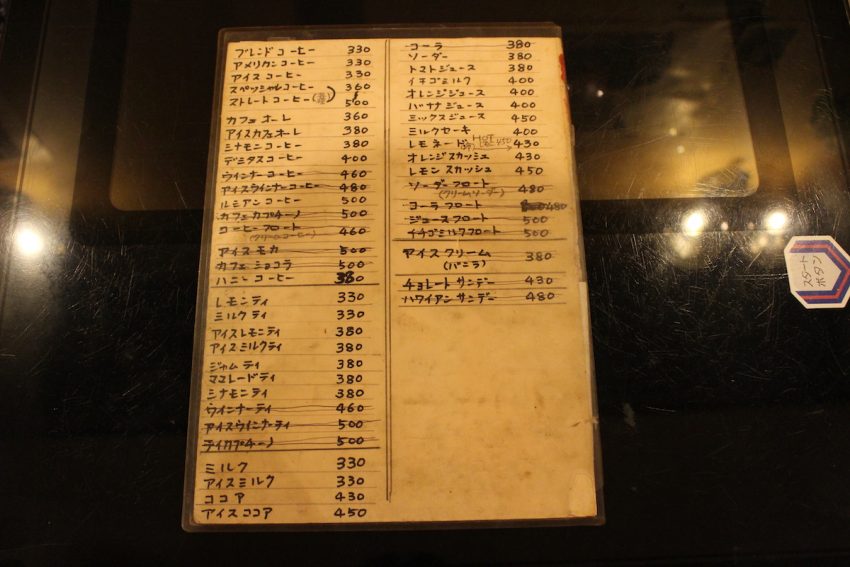 ブレンドコーヒー 330
アメリカンコーヒー 330
アイスコーヒー 330
スペッシャルコーヒー 360
ストレートコーヒー 500
カフェオーレ 360
アイスカフェオーレ 380
ミナモンコーヒー 380
デミタスコーヒー 400
ウインナーコーヒー 460
アイスウインナーコーヒー 480
ルミアンコーヒー 500
カフェカプチーノ 500
コーヒーフロート 460
(クリームコーヒー)
アイスモカ 500
カフェショコラ 500
ハニーコーヒー 380
レモンティ 330
ミルクティ 330
アイスレモンティ 380
アイスミルクティ 380
ジャムティ 380
ママレードティ 380
ミナモンティ 380
ウインナーティ 460
アイスウインナーティ 500
ティカプチーノ 500
ミルク 330
アイスミルク 330
ココア 430
アイスココア 450
コーラ 380
ソーダー 380
トマトジュース 380
イチゴミルク 400
オレンジジュース 400
バナナジュース 400
ミックスジュース 450
ミルクセーキ 400
レモネード HOT 450 430
オレンジスカッシュ 430
レモンスカッシュ 450
ソーダーフロート 480
(クリームソーダー)
コーラフロート 480
ジュースフロート 500
イチゴミルクフロート 500
アイスクリーム 380
(バニラ)
チョレートサンデー 430
ハワイアンサンデー 480
スタート
ボタン